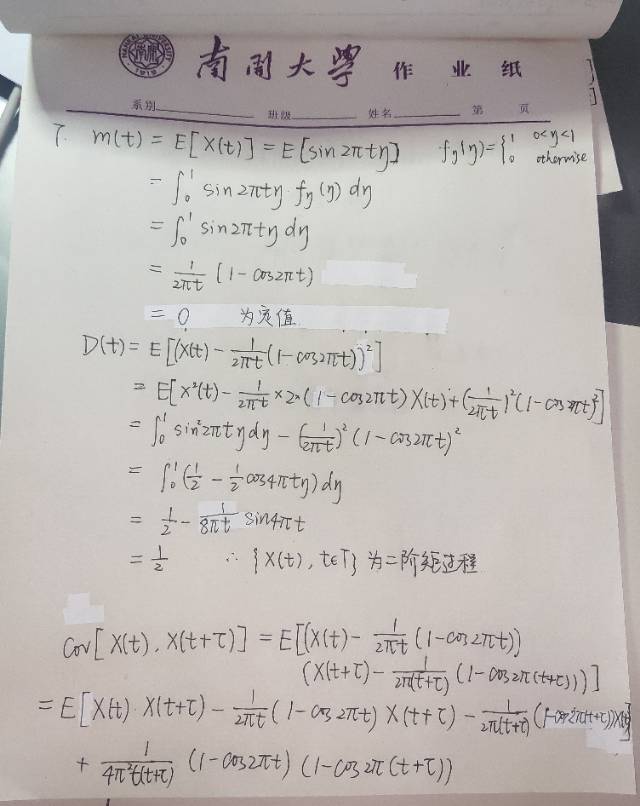 南开大学 作业纸
系别 班级 姓名 第 页
7. m(t) = E[X(t)] = E[sin2πtη] fη(η) = { 1 0<η<1
0 otherwise
= ∫₀¹ sin2πtη · fη(η) dη
= ∫₀¹ sin2πtη dη
= 1/2πt (1-cos2πt)
= 0 为定值
D(t) = E[(X(t) - 1/2πt (1-cos2πt))²]
= E[X²(t) - 1/2πt × 2×(1-cos2πt) X(t) + (1/2πt)² (1-cos2πt)²]
= ∫₀¹ sin²2πtη dη - (1/2πt)² (1-cos2πt)²
= ∫₀¹ (1/2 - 1/2 cos4πtη) dη
= 1/2 - 1/8πt sin4πt
= 1/2 ∴ {X(t), t∈T} 为二阶矩过程
cov[X(t), X(t+τ)] = E[(X(t) - 1/2πt (1-cos2πt))
(X(t+τ) - 1/2π(t+τ) (1-cos2π(t+τ)))]
= E[X(t)·X(t+τ) - 1/2πt (1-cos2πt) X(t+τ) - 1/2π(t+τ) (1-cos2π(t+τ)) X(t)]
+ 1/4π²t(t+τ) (1-cos2πt) (1-cos2π(t+τ))